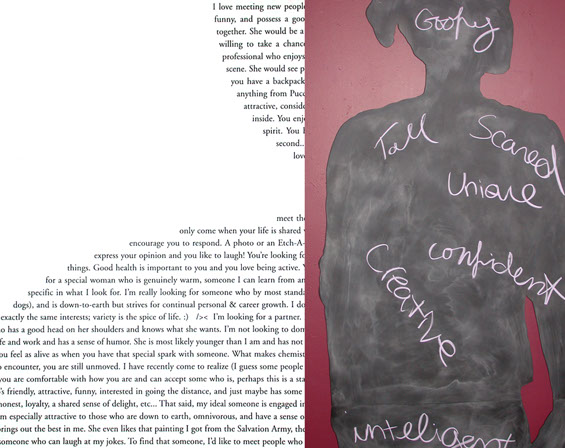 I love meeting new people
funny, and possess a goo
together. She would be a
willing to take a chance
professional who enjoys
scene. She would see p
you have a backpack
anything from Pucc
attractive, conside
inside. You enj
spirit. You l
second...
love
meet the
only come when your life is shared
encourage you to respond. A photo or an Etch-A-
express your opinion and you like to laugh! You're looking fo
things. Good health is important to you and you love being active.
for a special woman who is genuinely warm, someone I can learn from an
specific in what I look for. I'm really looking for someone who by most standa
dogs), and is down-to-earth but strives for continual personal & career growth. I do
exactly the same interests; variety is the spice of life. :) />< I'm looking for a partner.
o has a good head on her shoulders and knows what she wants. I'm not looking to dom
fe and work and has a sense of humor. She is most likely younger than I am and has not
ou feel as alive as when you have that special spark with someone. What makes chemist
o encounter, you are still unmoved. I have recently come to realize (I guess some people
you are comfortable with how you are and can accept who is, perhaps this is a sta
's friendly, attractive, funny, interesting in going the distance, and just maybe has some
honest, loyalty, a shared sense of delight, etc... That said, my ideal someone is engaged in
m especially attractive to those who are down to earth, omnivorous, and have a sense o
brings out the best in me. She even likes that painting I got from the Salvation Army, the
someone who can laugh at my jokes. To find that someone, I'd like to meet people who
Goofy
Tall
Scared
Unique
confident
Creative
inteligent